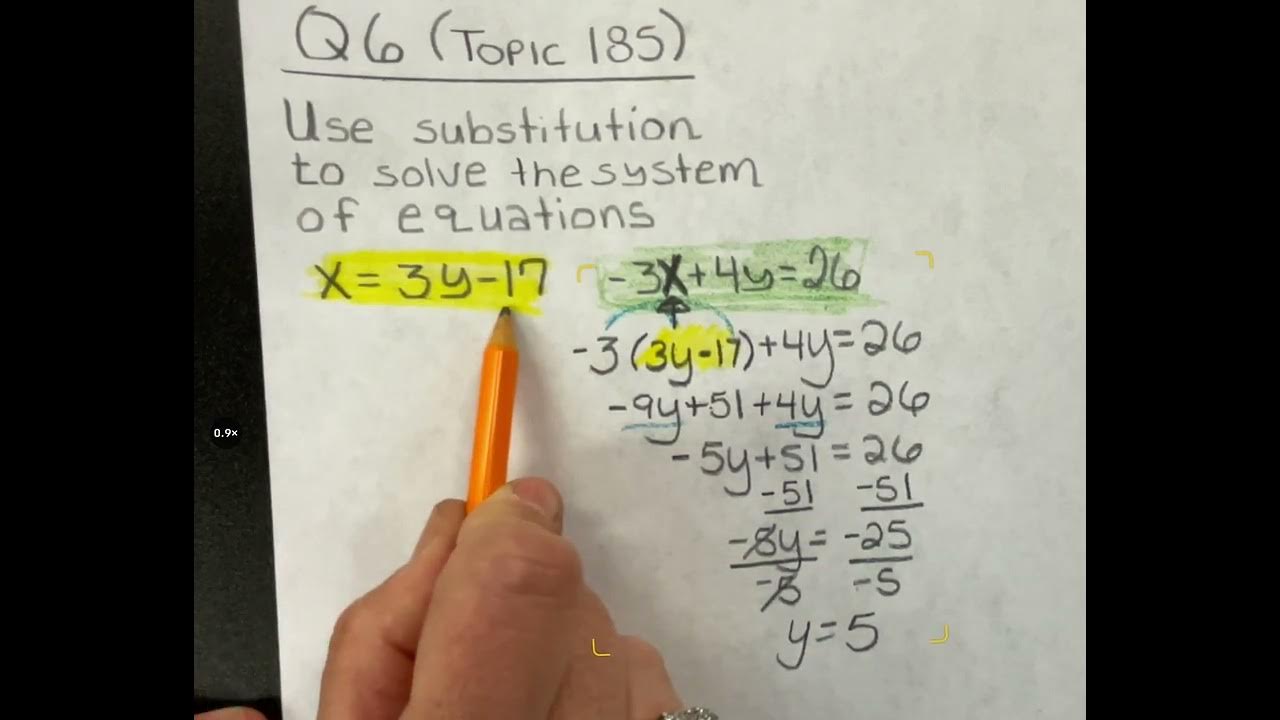 Q6 (TOPIC 185)
Use substitution
to solve the system
of equations
x = 3y-17
-3x+4y=26
-3(3y-17)+4y=26
-9y+51+4y=26
-5y+51=26
-51 -51
-5y=-25
-5 -5
y=5
0.9×